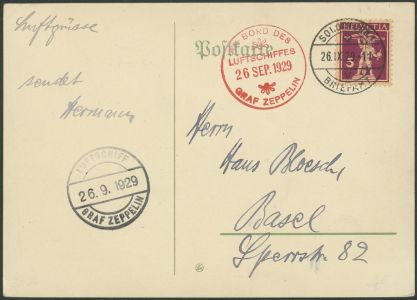 Luftgrüsse
sendet
Hermann
Postkarte
AN BORD DES
LUFTSCHIFFES
26 SEP. 1929
GRAF ZEPPELIN
SOLOTHURN
26.IX.29.11
BRIEFAUFG.
HELVETIA
5
LUFTSCHIFF
26.9.1929
GRAF ZEPPELIN
Herrn
Hans Bloesch
Basel
Sperrstr. 82